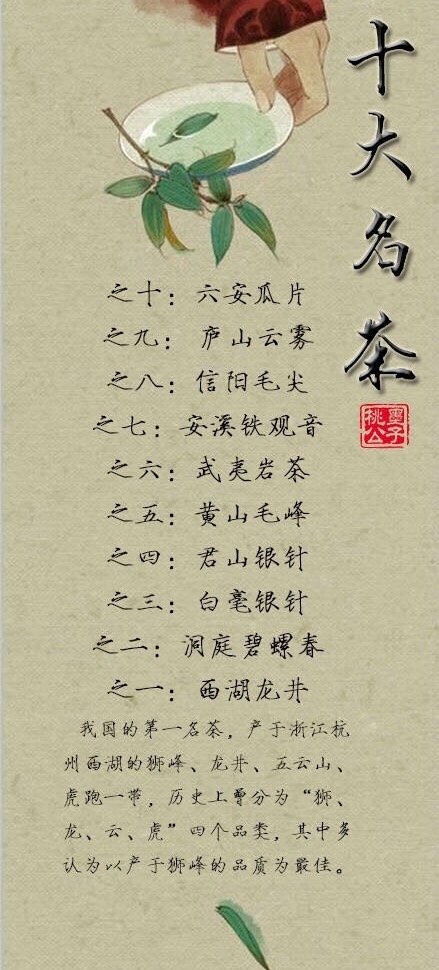 十大名茶
墨子
桃公
之十：六安瓜片
之九：庐山云雾
之八：信阳毛尖
之七：安溪铁观音
之六：武夷岩茶
之五：黄山毛峰
之四：君山银针
之三：白毫银针
之二：洞庭碧螺春
之一：西湖龙井
我国的第一名茶，产于浙江杭
州西湖的狮峰、龙井、五云山、
虎跑一带，历史上曾分为“狮、
龙、云、虎”四个品类，其中多
认为以产于狮峰的品质为最佳。